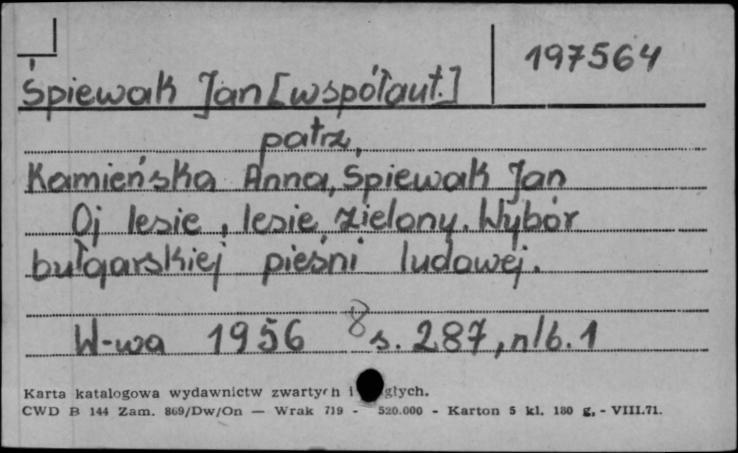 197564
Śpiewak Jan [współaut.]
patrz
Kamieńska Anna, Śpiewak Jan
Oj lesie, lesie zielony. Wybór
bułgarskiej pieśni ludowej.
W-wa 1956 8 s. 287, nlb. 1
Karta katalogowa wydawnictw zwartych i głych.
CWD B 144 Zam. 869/Dw/On — Wrak 719 - 520.000 - Karton 5 kl. 180 g, - VIII.71.